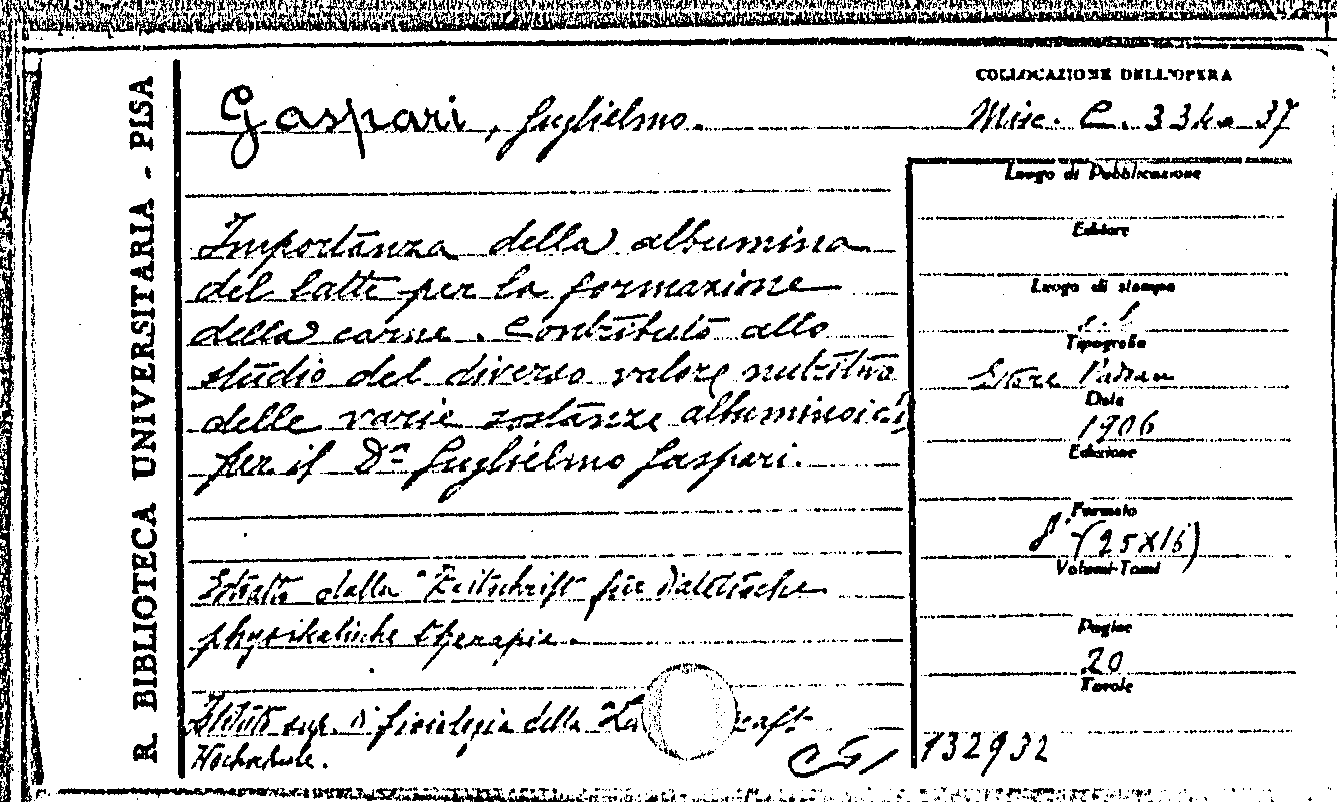 R. BIBLIOTECA UNIVERSITARIA - PISA
Gaspari, Guglielmo.
COLLOCAZIONE DELL'OPERA
Misc. C. 334. 37
Importanza della albumina
del latte per la formazione
della carne. Contributo allo
studio del diverso valore nutritivo
delle varie sostanze albuminoidi,
per il Dr Guglielmo Gaspari.
Estratto dalla "Zeitschrift für diätetische
physikalische therapie.
Istituto sup. di fisiologia della
Hochschule.
Luogo di Pubblicazione
Editore
Luogo di stampa
s. l.
Tipografia
Ettore Padoan
Data
1906
Edizione
Formato
8° (25X16)
Volumi-Tomi
Pagine
20
Tavole
132932